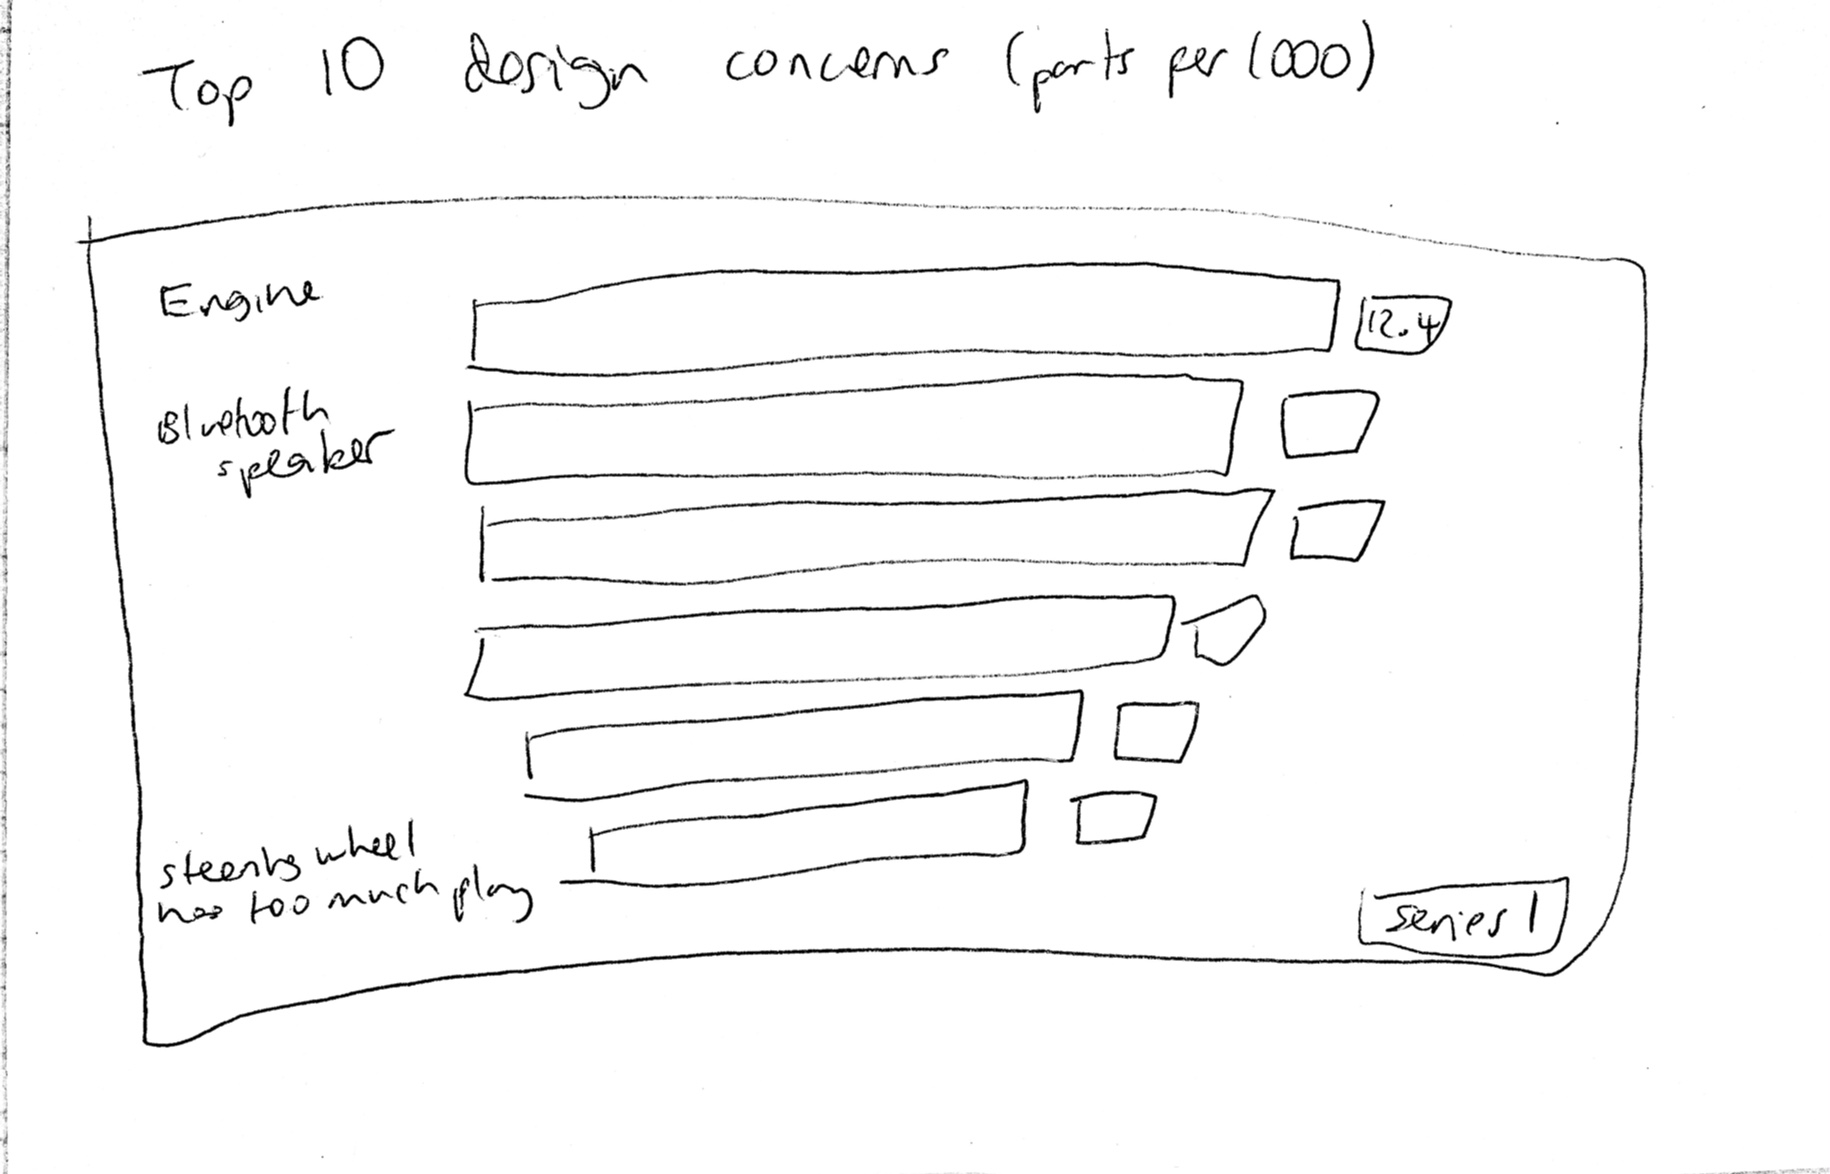 Top 10 design concerns (parts per 1000)
Engine
12.4
Bluetooth
speaker
steering wheel
has too much play
series 1